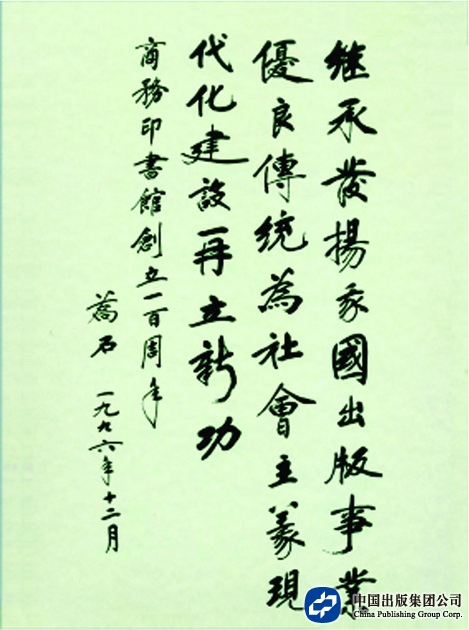 继承發揚我國出版事業
優良傳统為社會主義現
代化建設再立新功
商務印書館創立一百周年
喬石 一九九六年十二月
中国出版集团公司
China Publishing Group Corp.